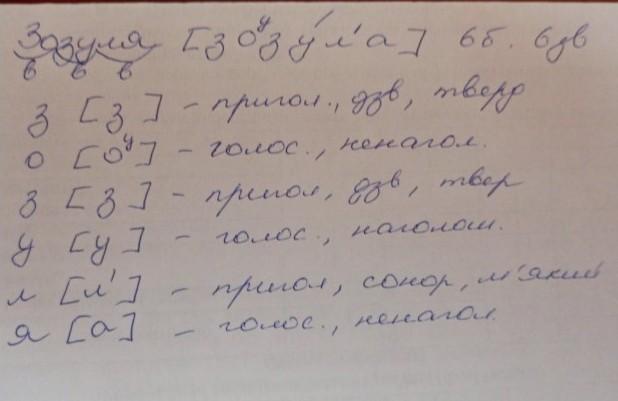 Зозуля [зоᵘзу́л'а] 6б. 6зв
в в в
з [з] – пригол., дзв, тверд
о [оʸ] – голос., ненагол.
з [з] – пригол, дзв, твер
у [у] – голос., наголош.
л [л'] – пригол, сонор, м'який
я [а] – голос., ненагол.